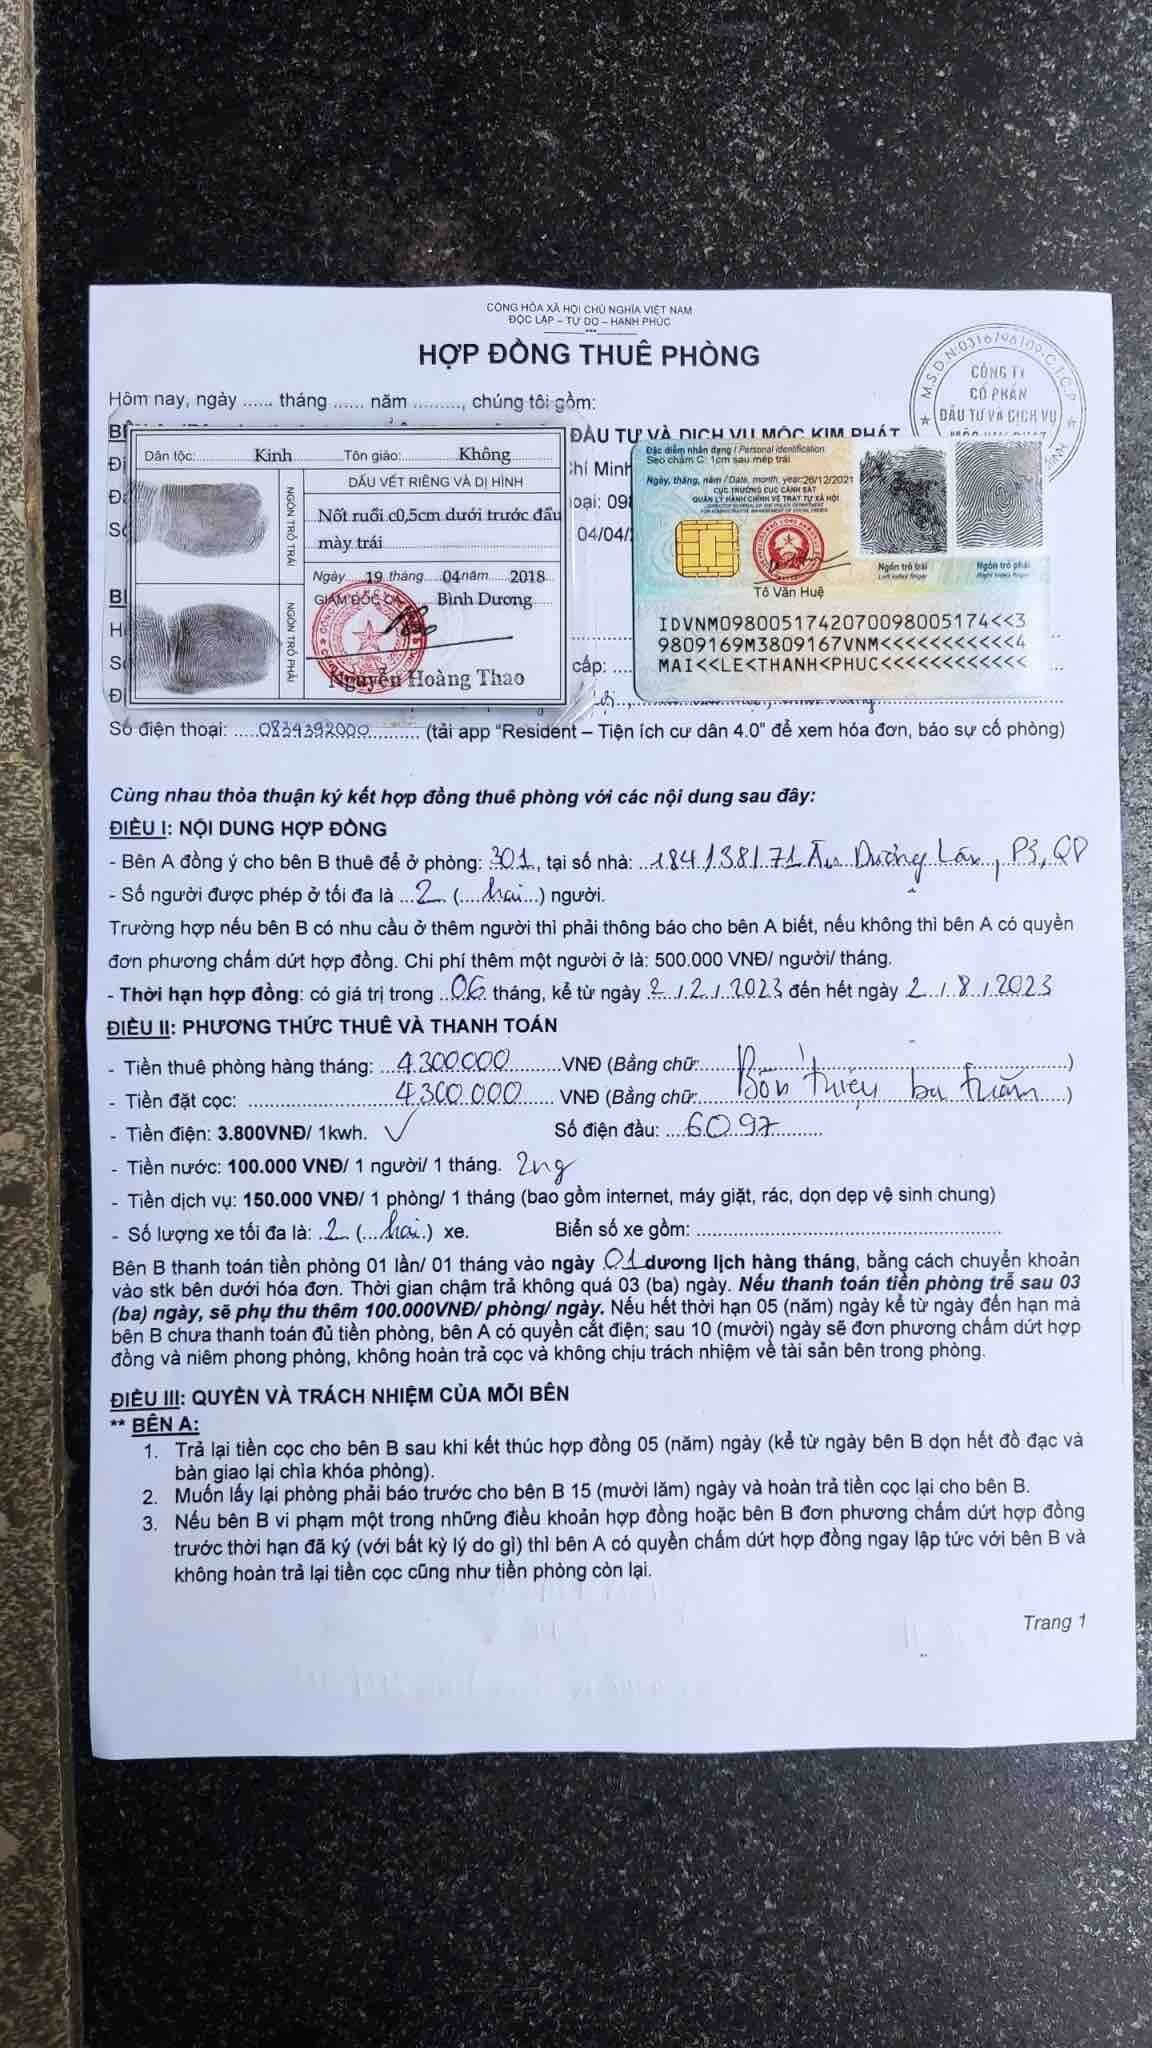 CỘNG HÒA XÃ HỘI CHỦ NGHĨA VIỆT NAM
ĐỘC LẬP – TỰ DO – HẠNH PHÚC
HỢP ĐỒNG THUÊ PHÒNG
M.S.D.N:0316796109-C.T.C.P
CÔNG TY
CỔ PHẦN
ĐẦU TƯ VÀ DỊCH VỤ
Hôm nay, ngày ...... tháng ...... năm ........., chúng tôi gồm:
ĐẦU TƯ VÀ DỊCH VỤ MỘC KIM PHÁT
Dân tộc: Kinh Tôn giáo: Không
DẤU VẾT RIÊNG VÀ DỊ HÌNH
Nốt ruồi c0,5cm dưới trước đầu
mày trái
NGÓN TRỎ TRÁI
Ngày 19 tháng 04 năm 2018
GIÁM ĐỐC CA Bình Dương
NGÓN TRỎ PHẢI
Nguyễn Hoàng Thao
Chí Minh
thoại: 098
04/04/
Đặc điểm nhân dạng / Personal identification:
Sẹo chấm C: 1cm sau mép trái
Ngày, tháng, năm / Date, month, year: 26/12/2021
CỤC TRƯỞNG CỤC CẢNH SÁT
QUẢN LÝ HÀNH CHÍNH VỀ TRẬT TỰ XÃ HỘI
Ngón trỏ trái
Left index finger
Ngón trỏ phải
Right index finger
Tô Văn Huệ
IDVNM0980051742070098005174<<3
9809169M3809167VNM<<<<<<<<<<<4
MAI<<LE<THANH<PHUC<<<<<<<<<<<<
cấp: ....
Số điện thoại: 0834392000 (tải app “Resident – Tiện ích cư dân 4.0” để xem hóa đơn, báo sự cố phòng)
Cùng nhau thỏa thuận ký kết hợp đồng thuê phòng với các nội dung sau đây:
ĐIỀU I: NỘI DUNG HỢP ĐỒNG
- Bên A đồng ý cho bên B thuê để ở phòng: 301, tại số nhà: 184/38/71 Âu Dương Lân, P3, Q8
- Số người được phép ở tối đa là 2 (hai) người.
Trường hợp nếu bên B có nhu cầu ở thêm người thì phải thông báo cho bên A biết, nếu không thì bên A có quyền
đơn phương chấm dứt hợp đồng. Chi phí thêm một người ở là: 500.000 VNĐ/ người/ tháng.
- Thời hạn hợp đồng: có giá trị trong 06 tháng, kể từ ngày 2/2/2023 đến hết ngày 2/8/2023
ĐIỀU II: PHƯƠNG THỨC THUÊ VÀ THANH TOÁN
- Tiền thuê phòng hàng tháng: 4.300.000 VNĐ (Bằng chữ: Bốn triệu ba trăm)
- Tiền đặt cọc: 4.300.000 VNĐ (Bằng chữ )
- Tiền điện: 3.800VNĐ/ 1kwh. Số điện đầu: 6097
- Tiền nước: 100.000 VNĐ/ 1 người/ 1 tháng. 2ng
- Tiền dịch vụ: 150.000 VNĐ/ 1 phòng/ 1 tháng (bao gồm internet, máy giặt, rác, dọn dẹp vệ sinh chung)
- Số lượng xe tối đa là: 2 (hai) xe. Biển số xe gồm:
Bên B thanh toán tiền phòng 01 lần/ 01 tháng vào ngày 01 dương lịch hàng tháng, bằng cách chuyển khoản
vào stk bên dưới hóa đơn. Thời gian chậm trả không quá 03 (ba) ngày. Nếu thanh toán tiền phòng trễ sau 03
(ba) ngày, sẽ phụ thu thêm 100.000VNĐ/ phòng/ ngày. Nếu hết thời hạn 05 (năm) ngày kể từ ngày đến hạn mà
bên B chưa thanh toán đủ tiền phòng, bên A có quyền cắt điện; sau 10 (mười) ngày sẽ đơn phương chấm dứt hợp
đồng và niêm phong phòng, không hoàn trả cọc và không chịu trách nhiệm về tài sản bên trong phòng.
ĐIỀU III: QUYỀN VÀ TRÁCH NHIỆM CỦA MỖI BÊN
** BÊN A:
1. Trả lại tiền cọc cho bên B sau khi kết thúc hợp đồng 05 (năm) ngày (kể từ ngày bên B dọn hết đồ đạc và
bàn giao lại chìa khóa phòng).
2. Muốn lấy lại phòng phải báo trước cho bên B 15 (mười lăm) ngày và hoàn trả tiền cọc lại cho bên B.
3. Nếu bên B vi phạm một trong những điều khoản hợp đồng hoặc bên B đơn phương chấm dứt hợp đồng
trước thời hạn đã ký (với bất kỳ lý do gì) thì bên A có quyền chấm dứt hợp đồng ngay lập tức với bên B và
không hoàn trả lại tiền cọc cũng như tiền phòng còn lại.
Trang 1